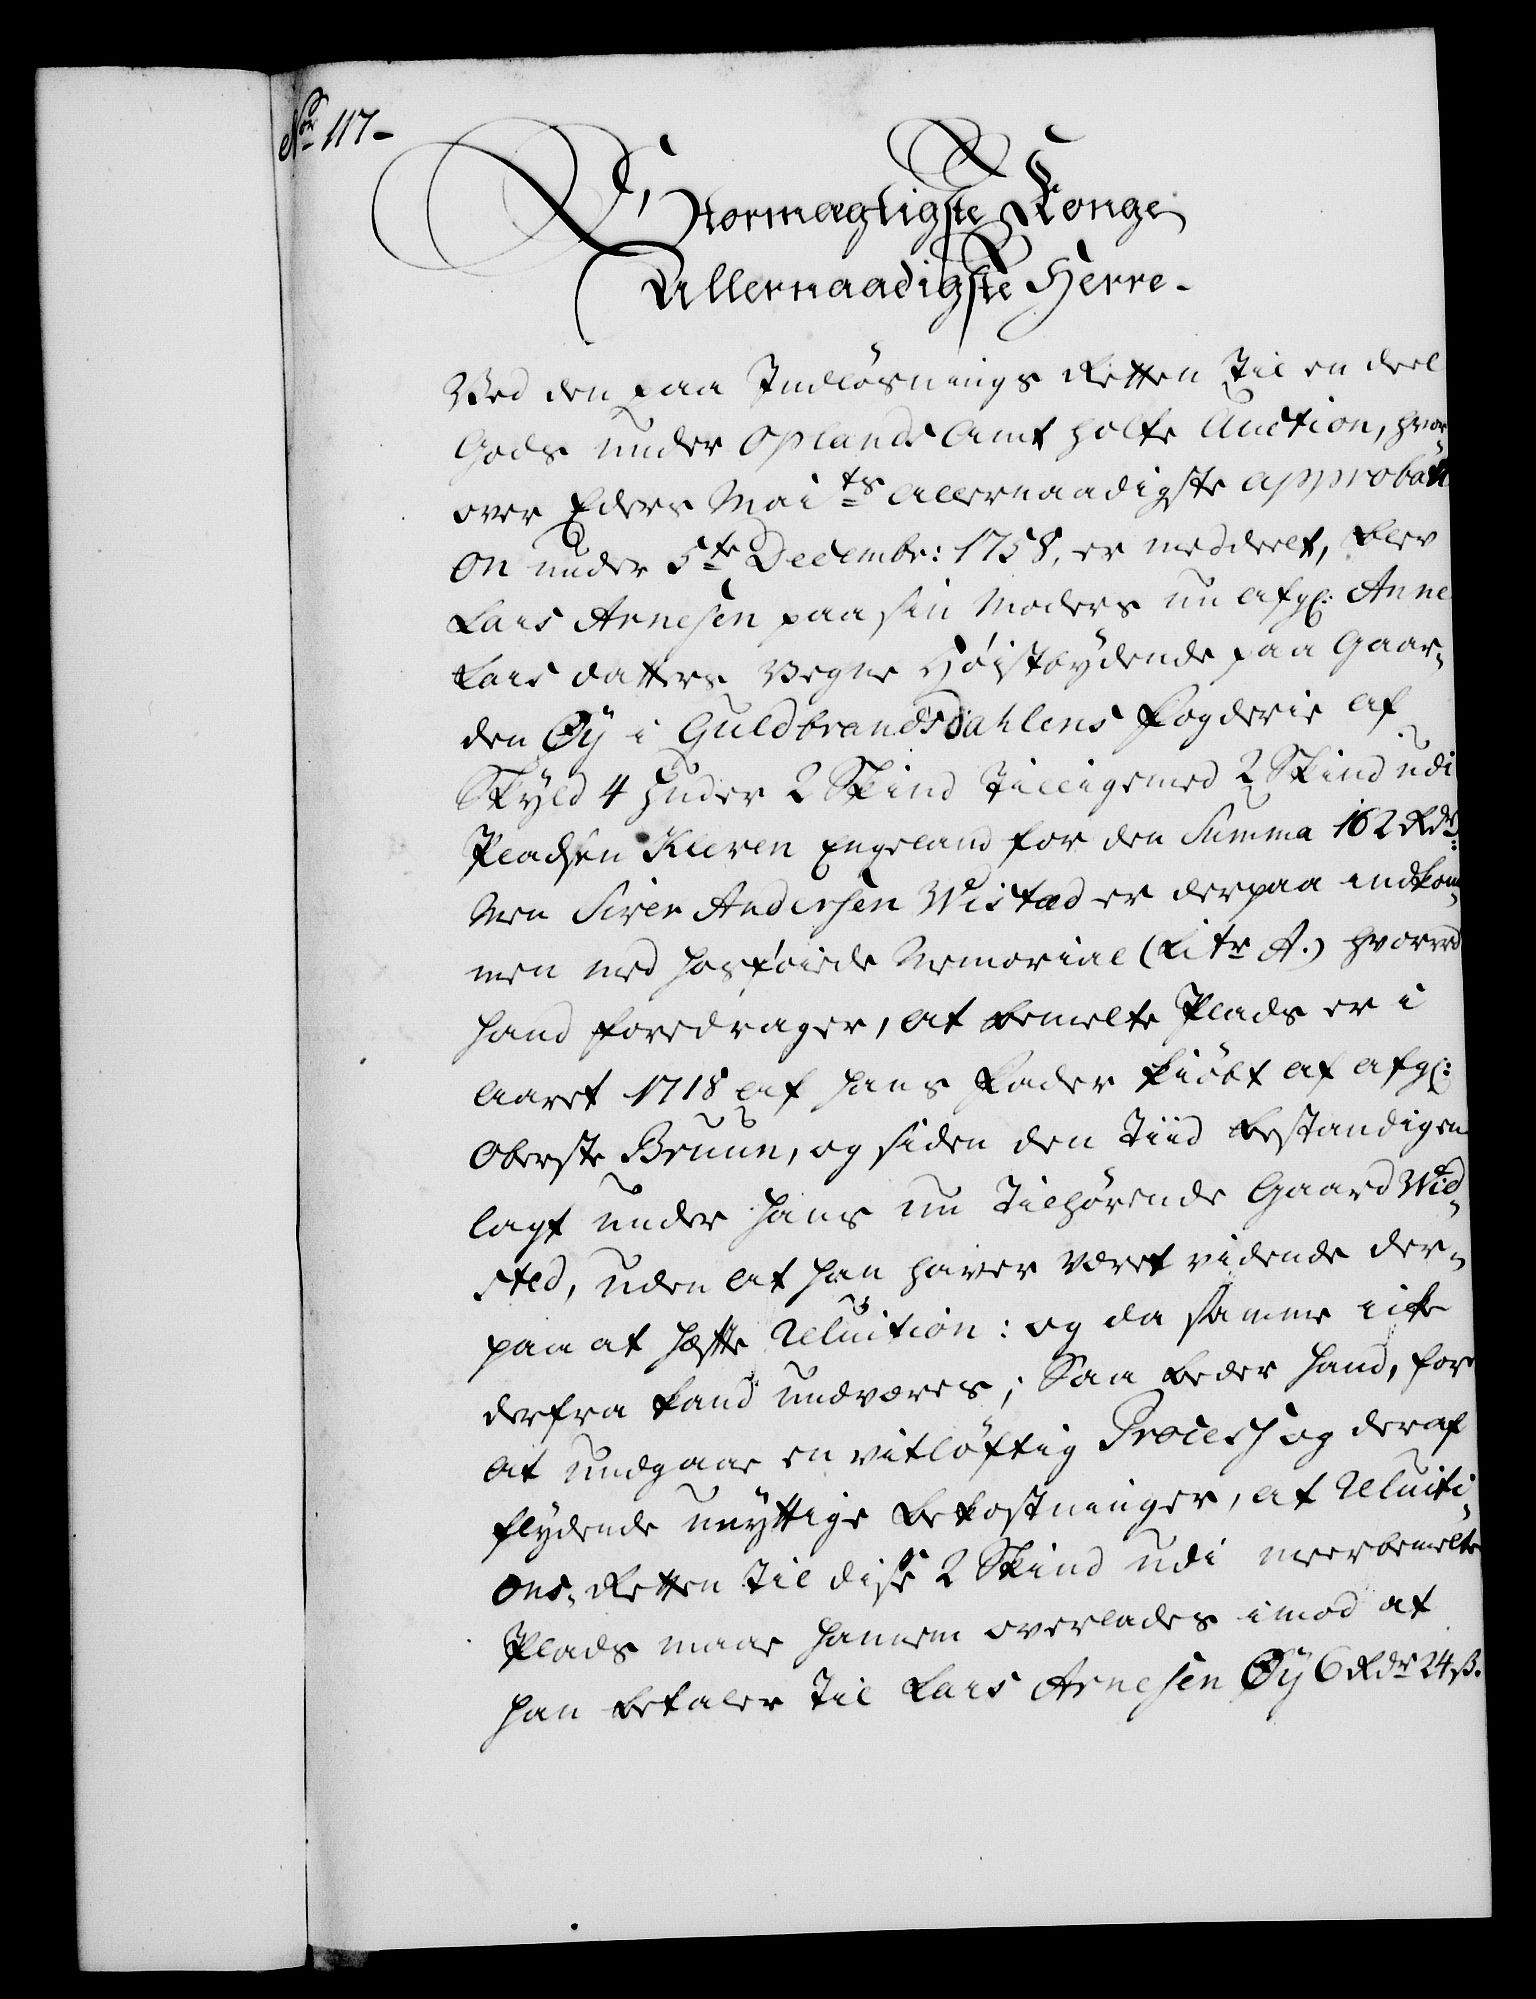 No 117-
Stormægtigste Konge
Allernaadigste Herre-
Ved den paa Indløsnings Retten til en deel
Gods under Oplands Amt holte Auction, hvor-
over Eders Maits allernaadigste approbati
on under 5te Decembr: 1758, er meddeelt, blev
Lars Arnesen paa sin Moders nu afg: Anne
Lars datters Vegne Høistbydende paa Gaar-
den Øy i Guldbrandsdahlens Fogderie af
Skyld 4 Huder 2 Skind tilligemed 2 Skind udi
Pladsen Kleven Engeland for den Summa 162 Rdr
Men Siver Andersen Wistad er derpaa indkom-
men med hosføiede Memorial (Litr A.) hvorved
hand foredrager, at bemelte Plads er i
Aaret 1718 af hans Fader kiøbt af afg:
Oberste Bruun, og siden den Tiid bestandigen
lagt under hans nu tilhørende Gaard Wid-
sted, uden at han haver været vidende der-
paa at hæfte Reluition: og da samme icke
derfra kand undværes; Saa beder hand, for
at undgaae en vitløftig Process og deraf
flydende unyttige Bekostninger, at Reluiti-
ons-Retten til disse 2 Skind udi meerbemelte
Plads maae hannem overlades imod at
han betaler til Lars Arnesen Øy 6 Rdr 24 ß.